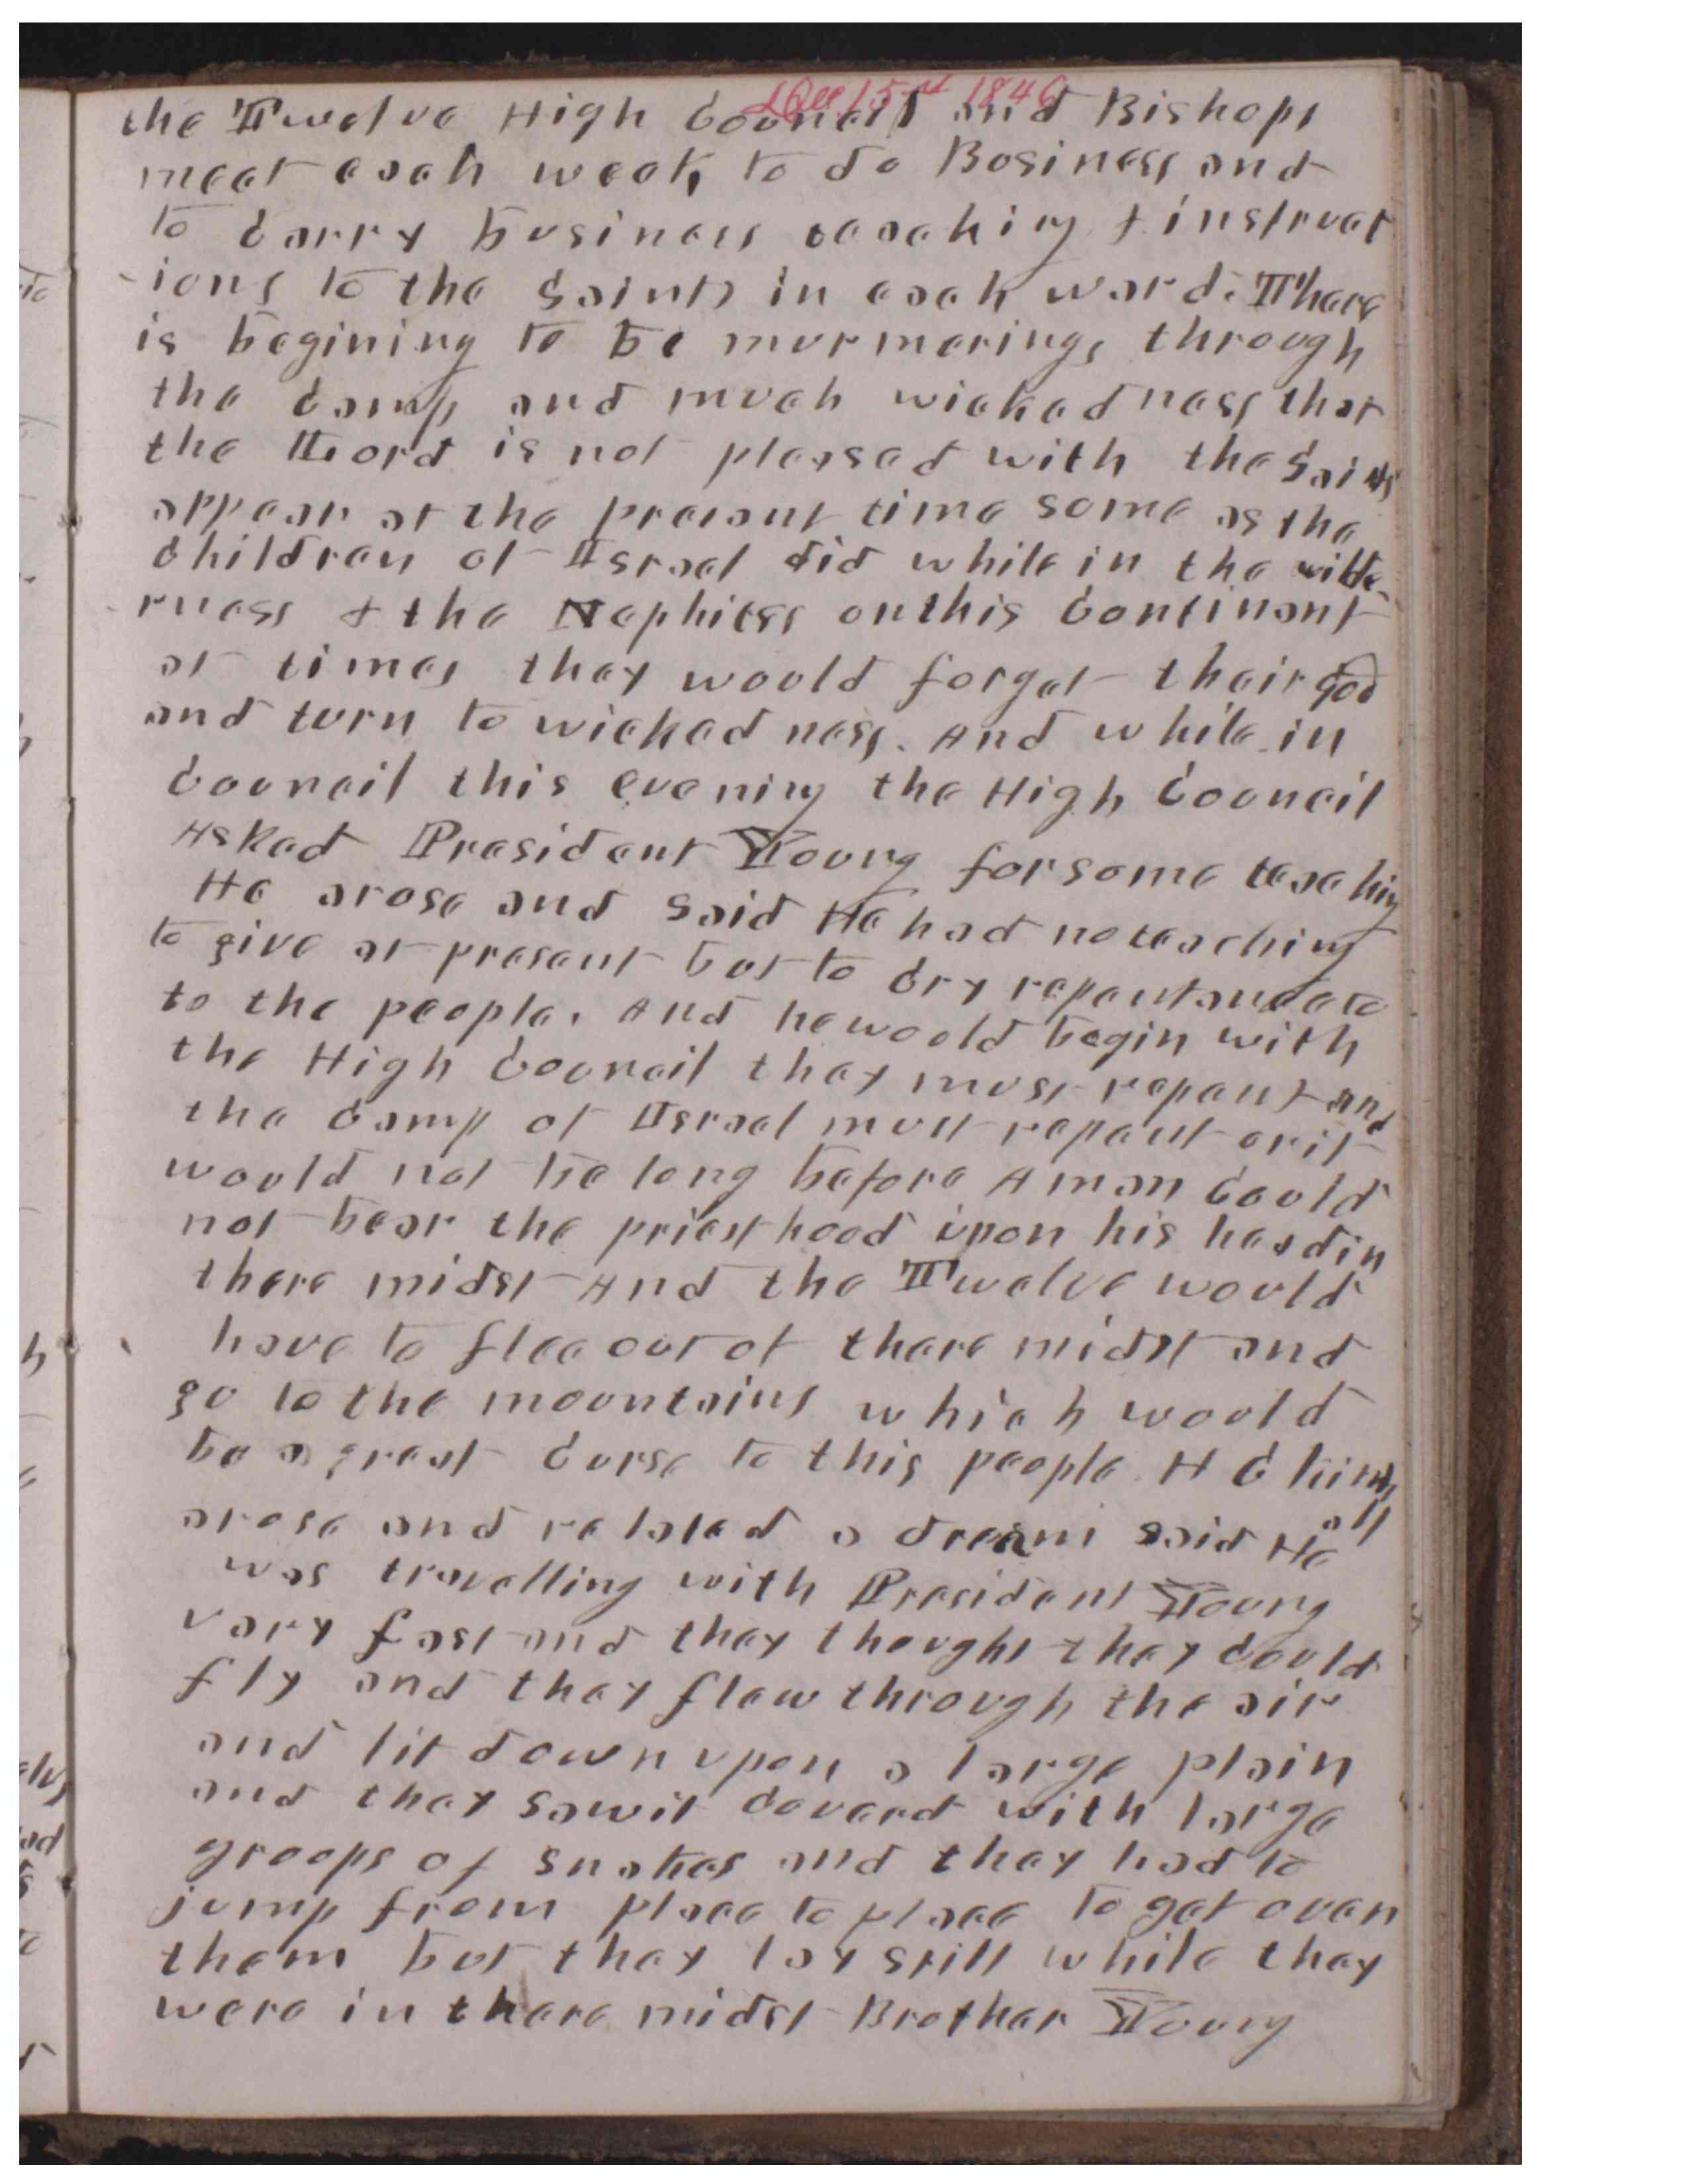 Dec 15th 1846
the Twelve High Council and Bishops
meet each week to do Business and
to carry business teaching & instruct
-ions to the Saints in each ward. There
is begining to be murmerings through
the camp and much wickedness that
the Lord is not pleased with the Saints
appear at the present time some as the
Children of Israel did while in the wilde-
rness & the Nephites on this Continent
at times they would forget their god
and turn to wickedness. And while in
Council this evening the High Council
Asked President Young for some teaching
He arose and said He had no teaching
to give at present but to cry repentance to
to the people. And he would begin with
the High Council they must repent and
the Camp of Israel must repent or it
would not be long before A man Could
not bear the priesthood upon his head in
there midst And the Twelve would
have to flee out of there midst and
go to the mountains which would
be a great Curse to this people. H C Kimball
arose and related a dream said He
was travelling with President Young
very fast and they thought they Could
fly and they flew through the air
and lit down upon a large plain
and they saw it coverd with large
groops of snakes and they had to
jump from place to place to get over
them but they lay still while they
were in there midst Brother Young